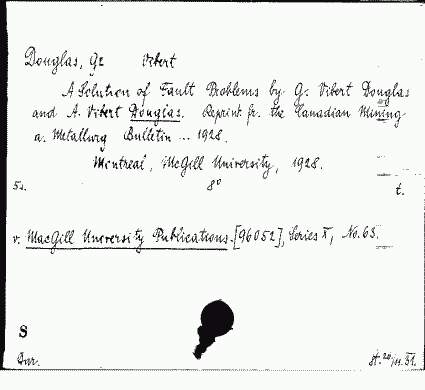 Douglas, Ge Vibert
A Solution of Fault Problems by G. Vibert Douglas
and A. Vibert Douglas. Reprint fr. the Canadian Mining
a. Metallurg Bulletin ... 1928.
Montreal, McGill University, 1928.
5s. 8° t.
v. MacGill University Publications. [96052], Series X, No. 63.
S
Dar. st. 20/IV. 31.